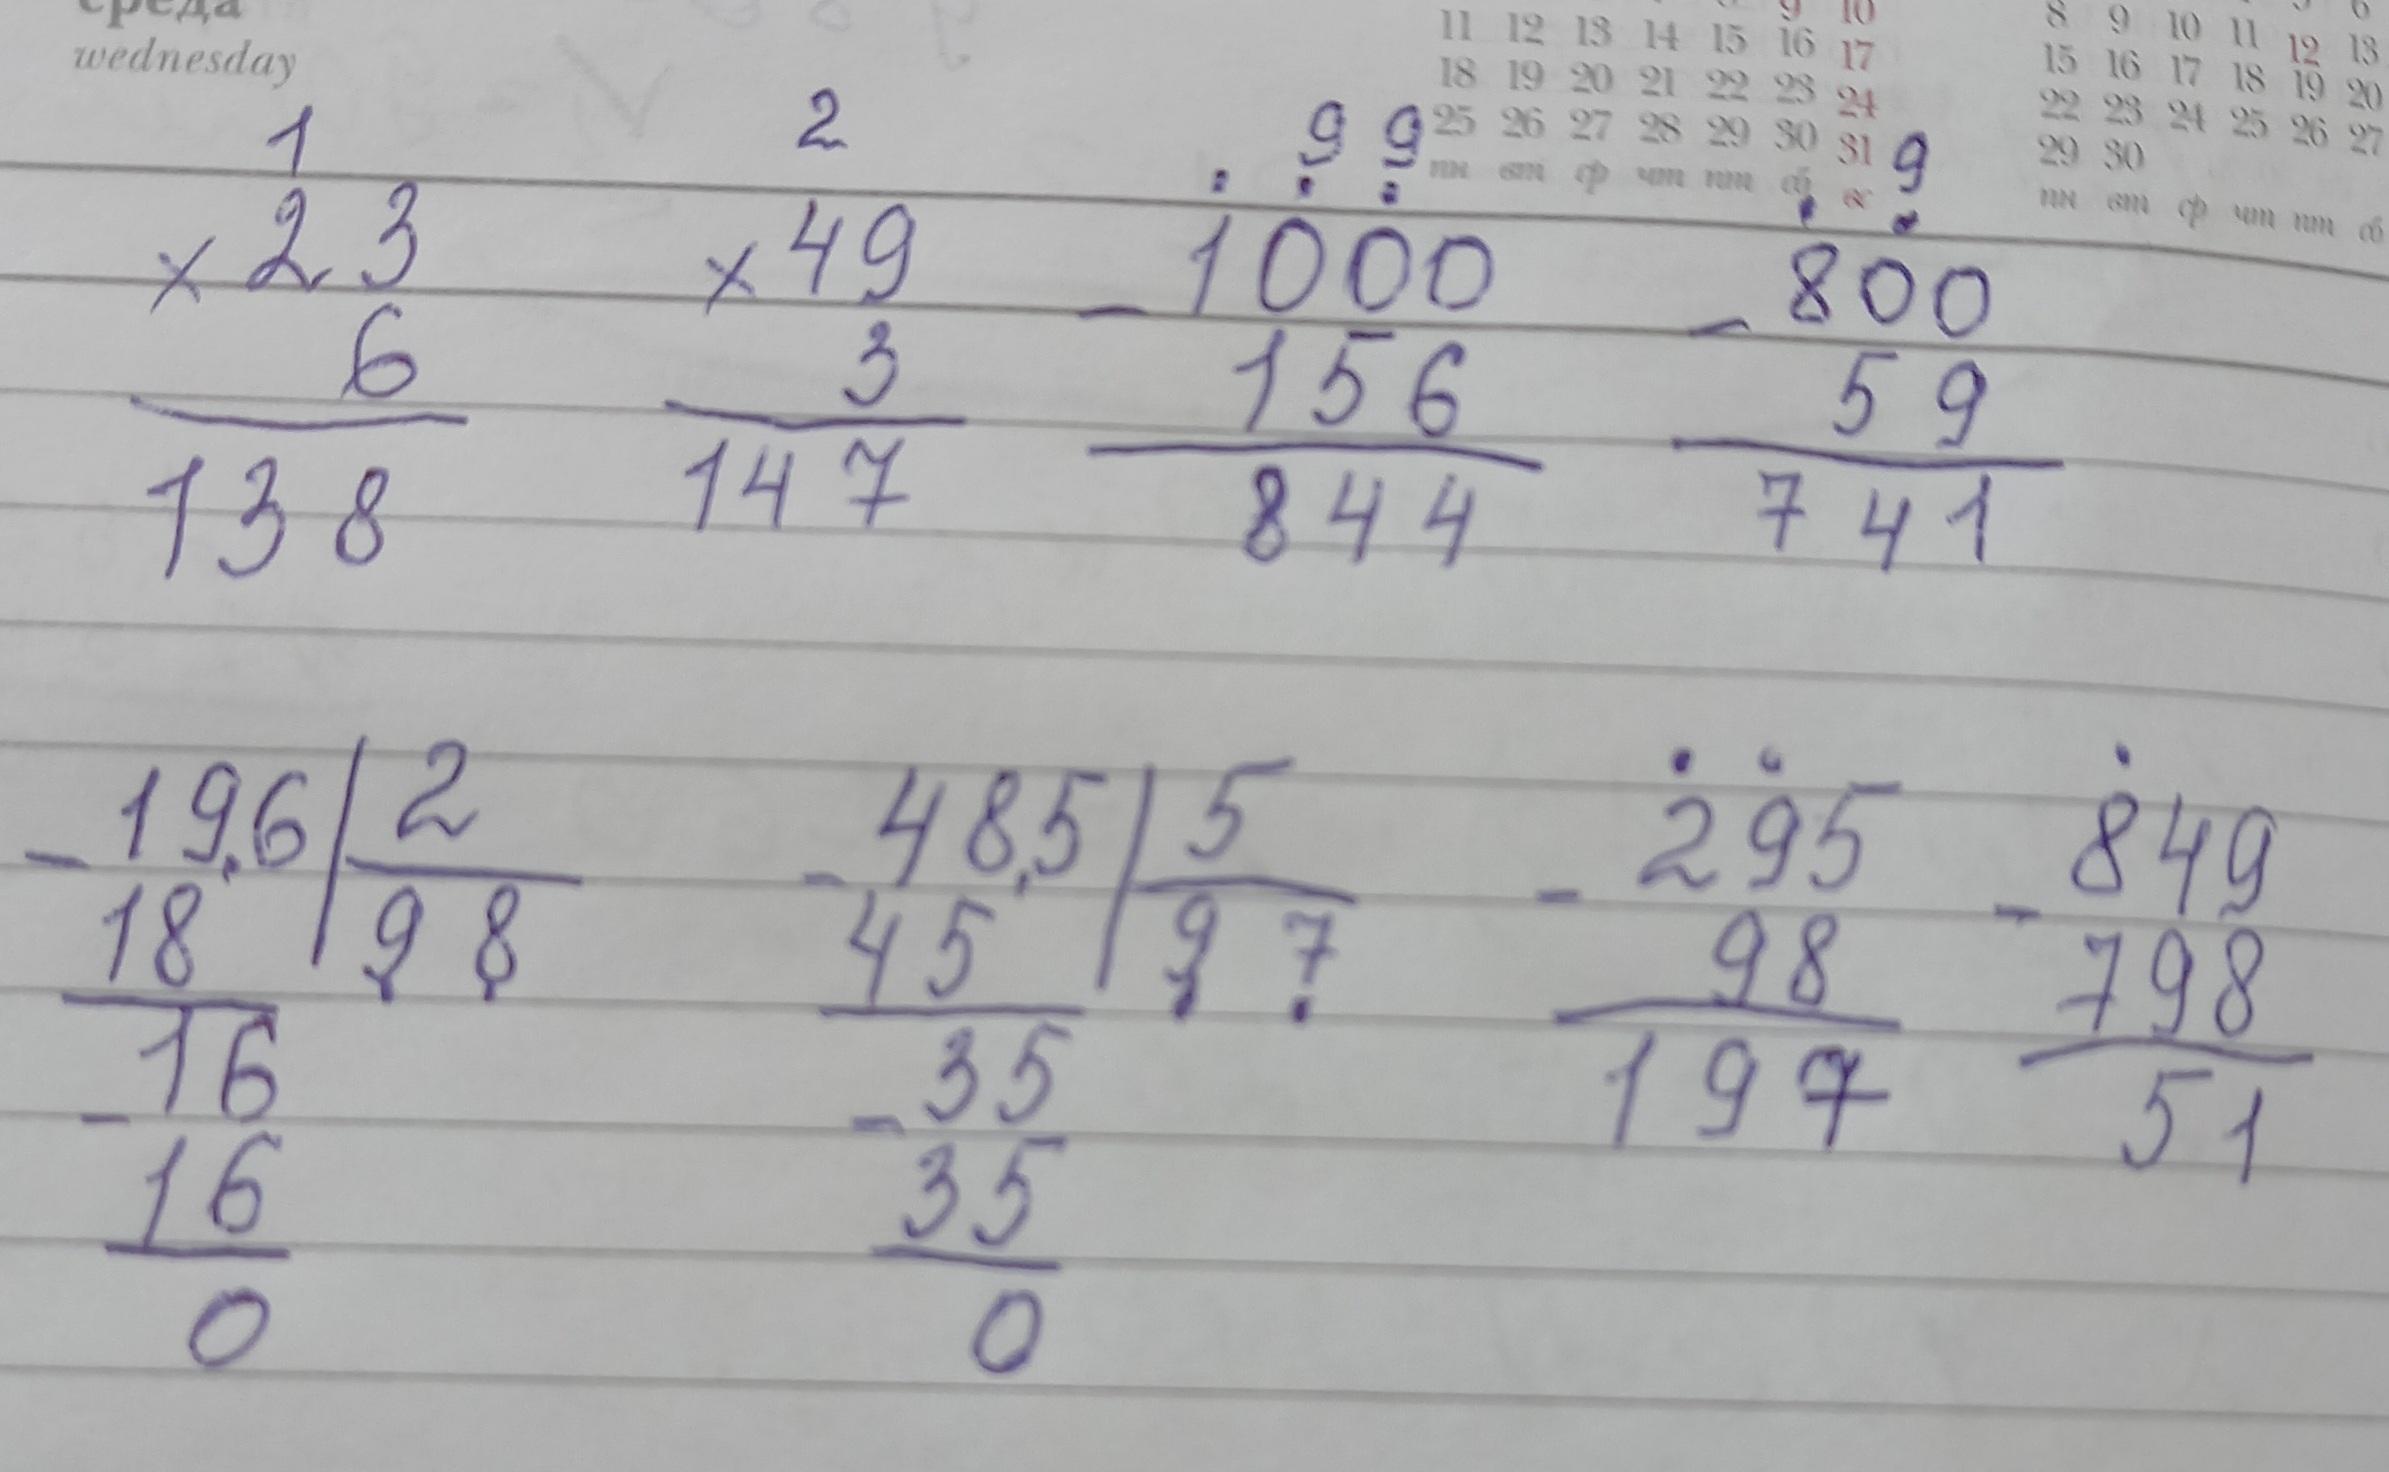 среда
wednesday
9 10
11 12 13 14 15 16 17
18 19 20 21 22 23 24
25 26 27 28 29 30 31
пн вт ср чт пт сб вс
6
8 9 10 11 12 13
15 16 17 18 19 20
22 23 24 25 26 27
29 30
пн вт ср чт пт сб
1 2 . 9 9 . 9
× 23 × 49 - 1000 - 800
6 3 156 59
138 147 844 741
- 19,6 | 2 - 48,5 | 5 - 295 - 849
18 | 98 45 | 97 98 798
16 35 197 51
- 16 - 35
0 0